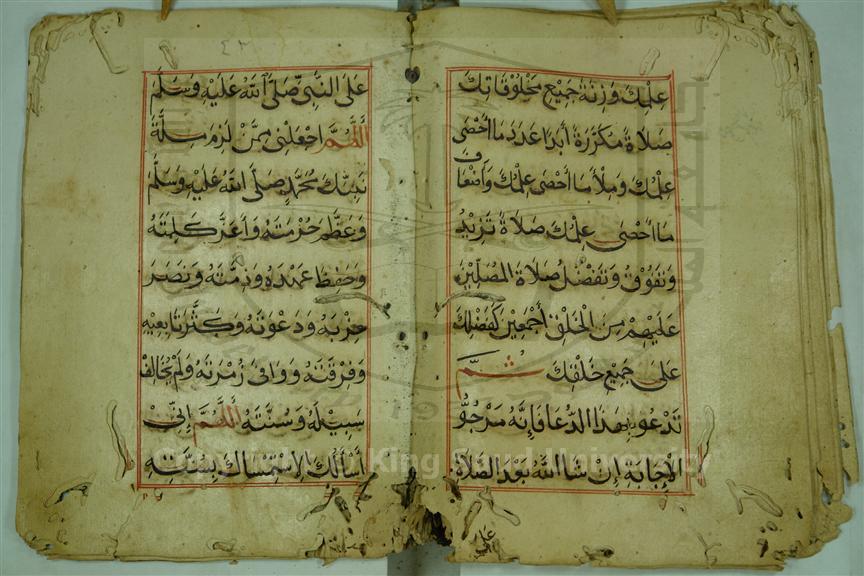 علمك وزنة جميع مخلوقاتك
صلاة مكررة أبدا عدد ما احصى
علمك وملأ ما أحصى علمك وأضعاف
ما احصى علمك صلاة تزيد
وتفوق وتفضل صلاة المصلين
عليهم من الخلق أجمعين كفضلك
على جميع خلقك ثم
تدعو بهذا الدعا فإنه مرجو
الإجابة إن شا الله بعد الصلاة
على النبي صلى الله عليه وسلم
اللهم اجعلني ممن لزم ملة
نبيك محمد صلى الله عليه وسلم
وعظم حرمته وأعز كلمته
وحفظ عهده وذمته ونصر
حزبه ودعوته وكثر تابعيه
وفرقته ووافى زمرته ولم يخالف
سبيله وسنته اللهم إني
أسألك الاستمساك بسنته
٤٢
King University